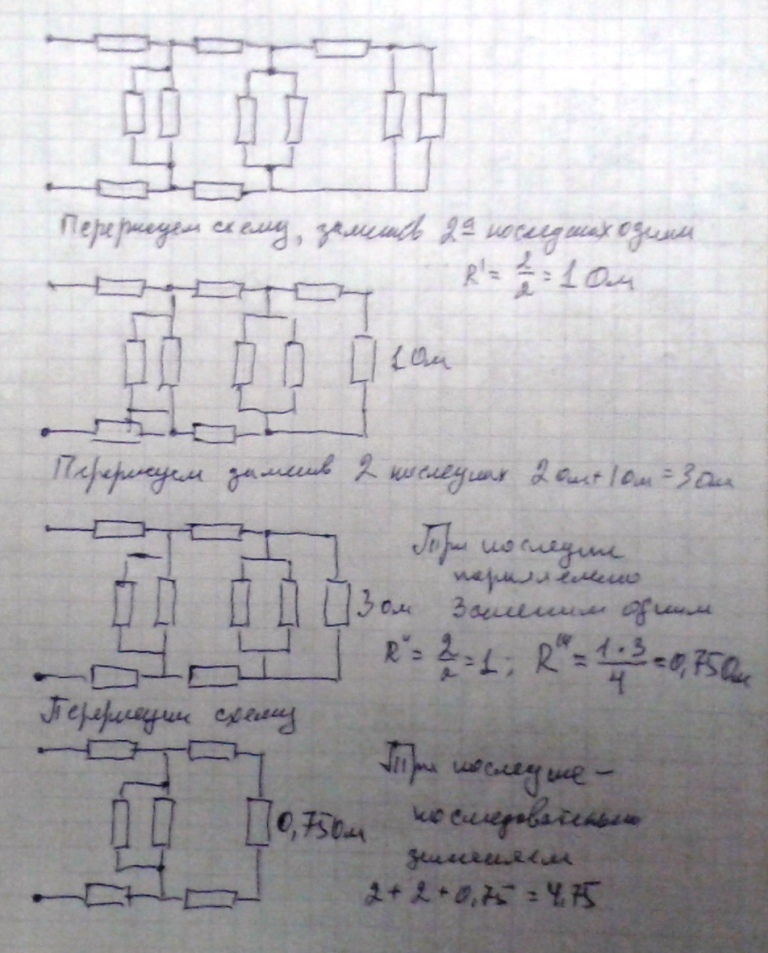 Перерисуем схему, заменив 2а последних одним
R' = 2/2 = 1 Ом
1 Ом
Перерисуем заменив 2 последних 2 Ом + 1 Ом = 3 Ом
Три последних
параллельно
3 Ом Заменим одним
R'' = 2/2 = 1; R''' = 1·3/4 = 0,75 Ом
Перерисуем схему
Три последние –
0,75 Ом последовательно
заменяем
2 + 2 + 0,75 = 4,75